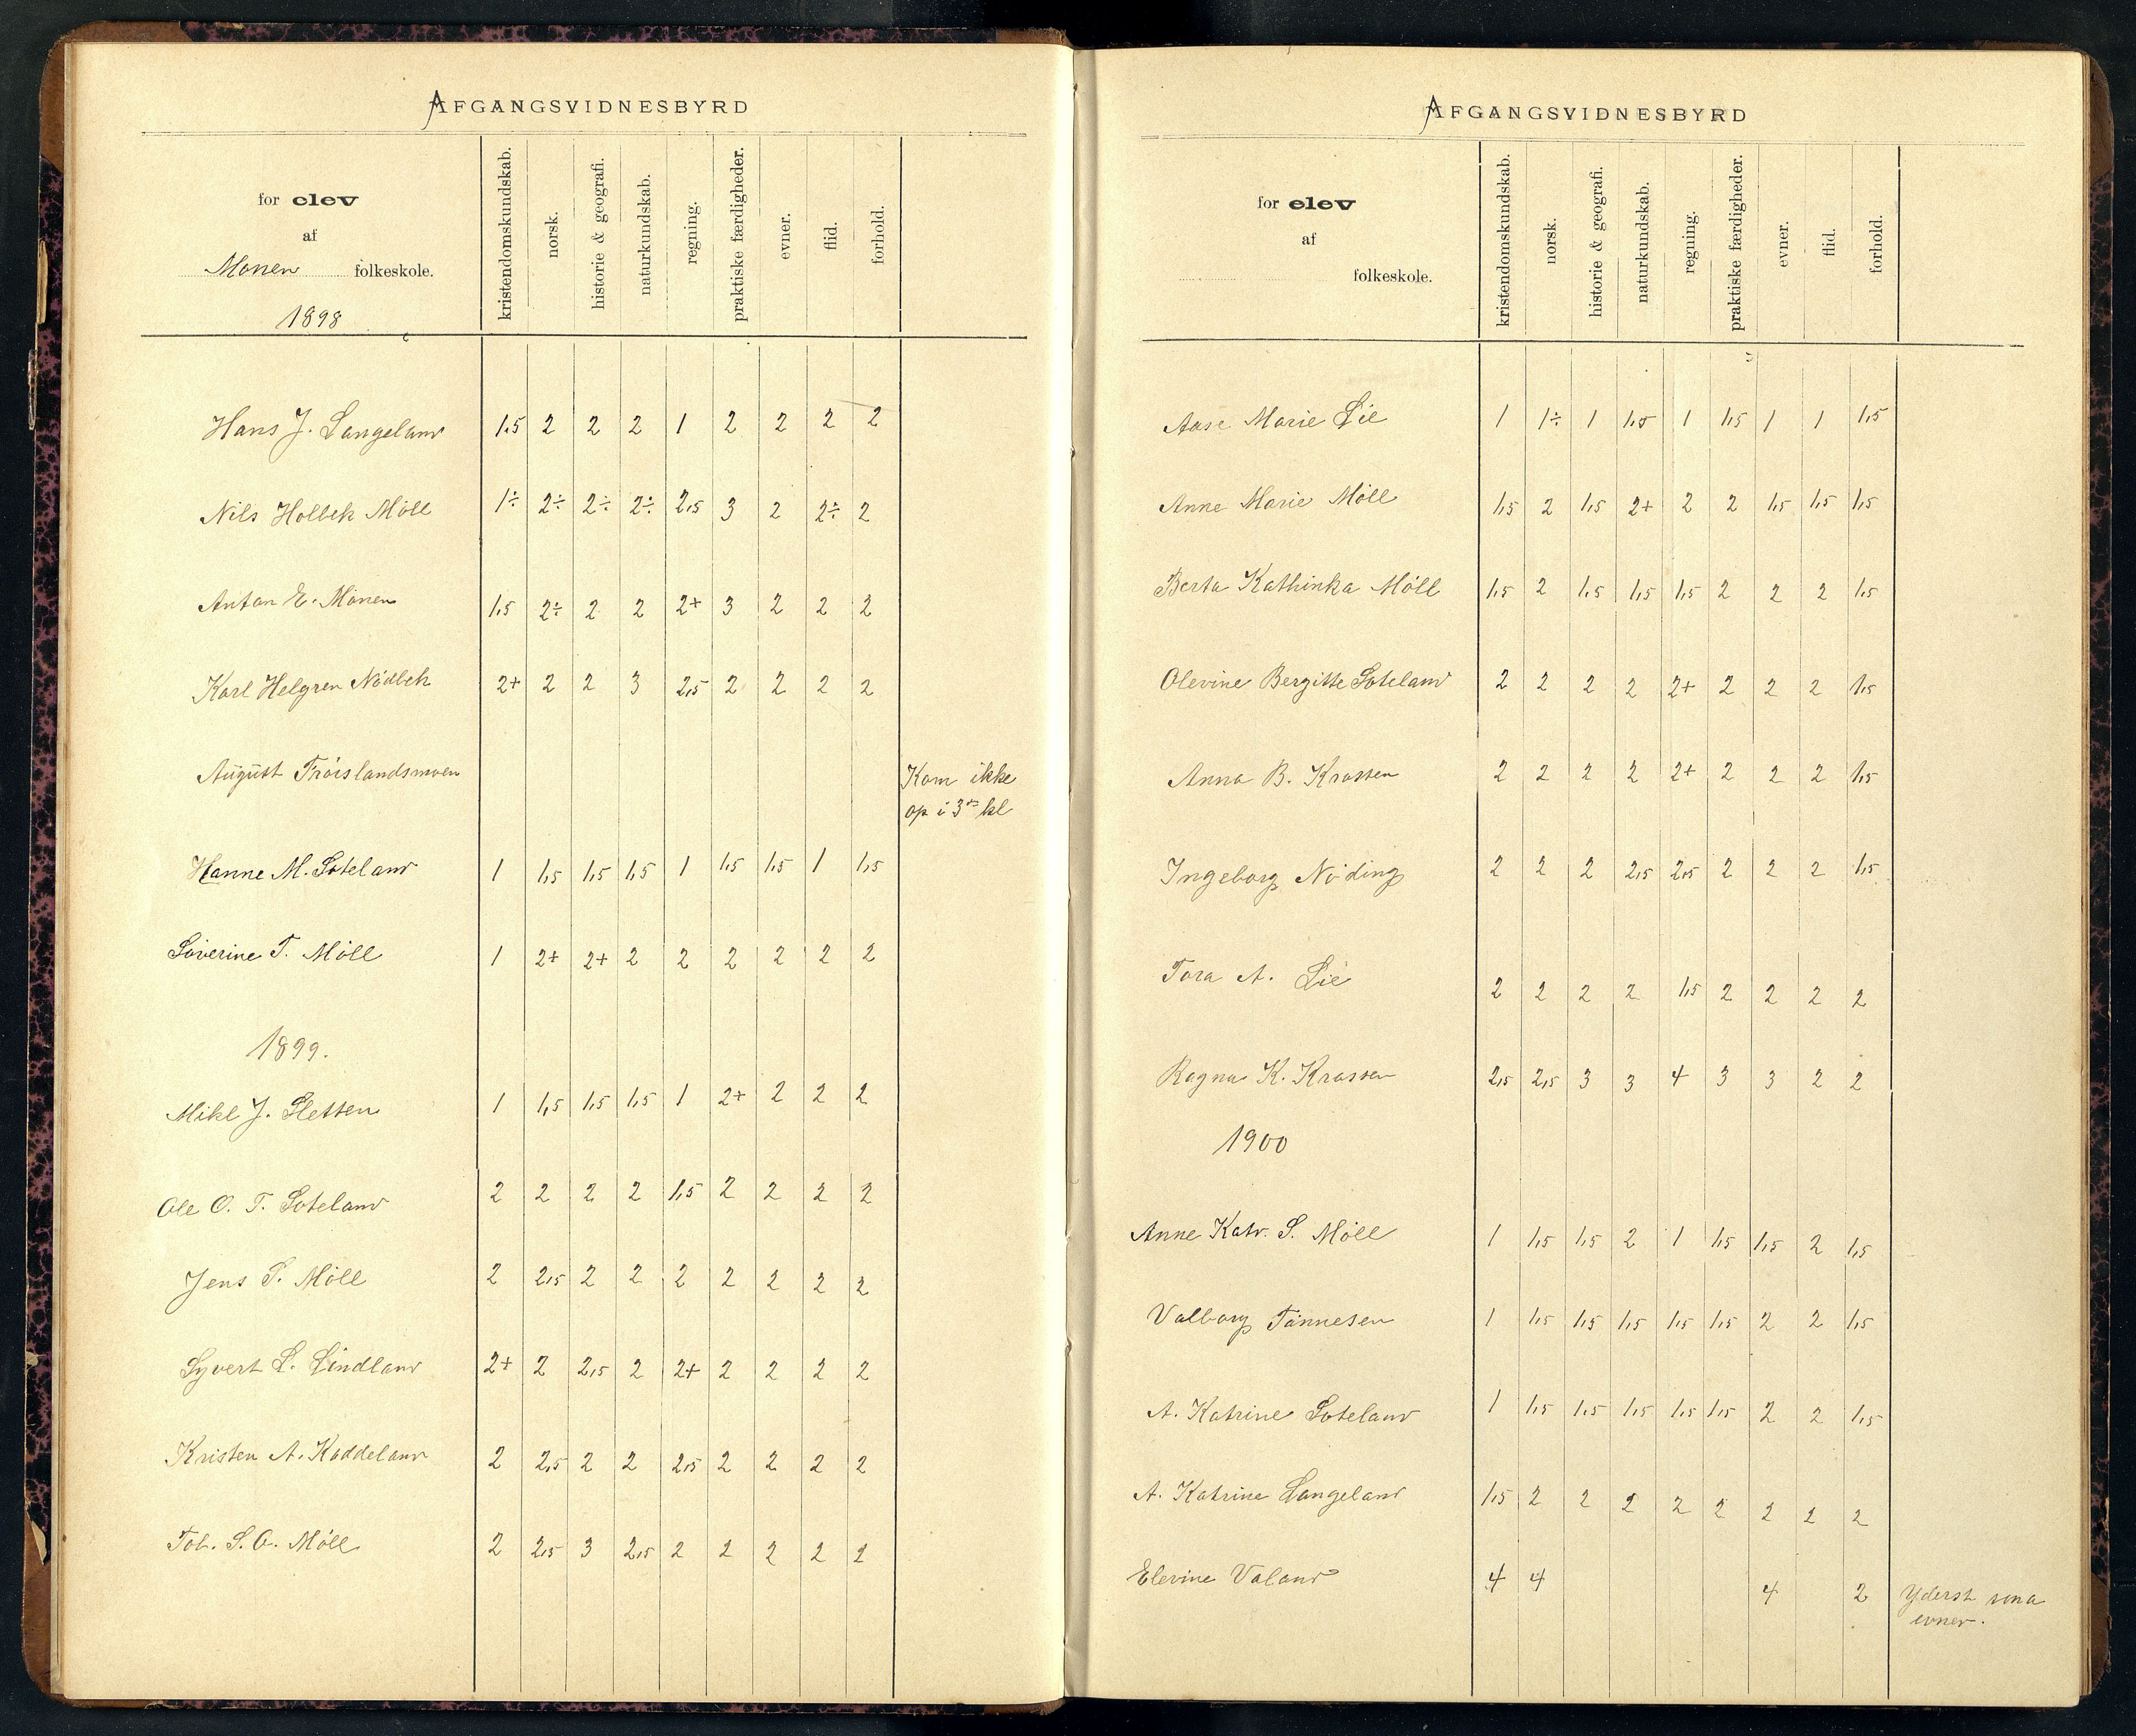 AFGANGSVIDNESBYRD
for elev
af
Monen folkeskole.
1898
kristendomskundskab.
norsk.
historie & geografi.
naturkundskab.
regning.
praktiske færdigheder.
evner.
flid.
forhold.
Hans J. Langeland 1,5 2 2 2 1 2 2 2 2
Nils Holbek Möll 1÷ 2÷ 2÷ 2÷ 2,5 3 2 2÷ 2
Anton E. Monen 1,5 2÷ 2 2 2+ 3 2 2 2
Karl Helgren Nödbek 2+ 2 2 3 2,5 2 2 2 2
August Tröislandsmoen Kom ikke
op i 3die kl
Hanne M. Soteland 1 1,5 1,5 1,5 1 1,5 1,5 1 1,5
Söverine T. Möll 1 2+ 2+ 2 2 2 2 2 2
1899.
Mikl J. Sletten 1 1,5 1,5 1,5 1 2+ 2 2 2
Ole O. T. Soteland 2 2 2 2 1,5 2 2 2 2
Jens S. Möll 2 2,5 2 2 2 2 2 2 2
Syvert L. Lindland 2+ 2 2,5 2 2+ 2 2 2 2
Kristen A. Kaddeland 2 2,5 2 2 2,5 2 2 2 2
Tob. S. O. Möll 2 2,5 3 2,5 2 2 2 2 2
AFGANGSVIDNESBYRD
for elev
af
folkeskole.
kristendomskundskab.
norsk.
historie & geografi.
naturkundskab.
regning.
praktiske færdigheder.
evner.
flid.
forhold.
Aase Marie Lie 1 1÷ 1 1,5 1 1,5 1 1 1,5
Anne Marie Möll 1,5 2 1,5 2+ 2 2 1,5 1,5 1,5
Berta Kathinka Möll 1,5 2 1,5 1,5 1,5 2 2 2 1,5
Olevine Bergitte Soteland 2 2 2 2 2+ 2 2 2 1,5
Anna B. Krossen 2 2 2 2 2+ 2 2 2 1,5
Ingeborg Nöding 2 2 2 2,5 2,5 2 2 2 1,5
Tora A. Lie 2 2 2 2 1,5 2 2 2 2
Ragna K. Krossen 2,5 2,5 3 3 4 3 3 2 2
1900
Anne Katr. S. Möll 1 1,5 1,5 2 1 1,5 1,5 2 1,5
Valborg Tönnesen 1 1,5 1,5 1,5 1,5 1,5 2 2 1,5
A. Katrine Soteland 1 1,5 1,5 1,5 1,5 1,5 2 2 1,5
A. Katrine Langeland 1,5 2 2 2 2 2 2 2 2
Elevine Valand 4 4 4 2 Yderst sma
evner.